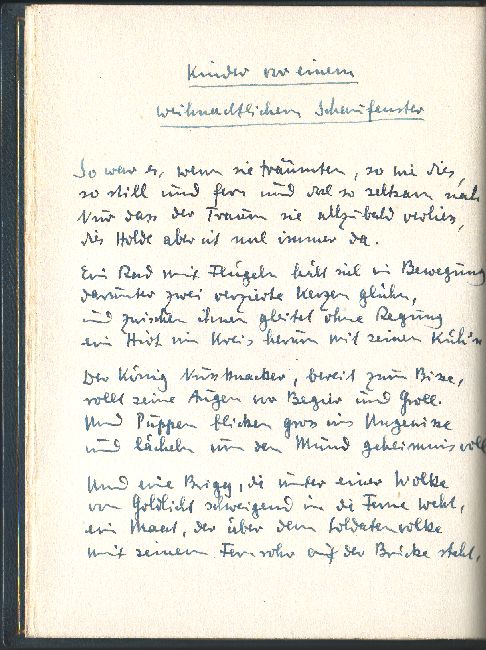 Kinder vor einem
weihnachtlichen Schaufenster
So war es, wenn sie träumten, so wie dies,
so still und fern und doch so seltsam nah
Nur dass der Traum sie allzubald verliess,
dies Holde aber ist und immer da.
Ein Rad mit Flügeln hält sich in Bewegung
darunter zwei verzierte Kerzen glühn,
und zwischen ihnen gleitet ohne Regung
ein Hirt im Kreis herum mit seinen Küh'n
Der König Nussknacker, bereit zum Bisse,
rollt seine Augen vor Begier und Groll.
Und Puppen blicken gross ins Ungewisse
und lächeln um den Mund geheimnisvoll
Und eine Brigg, die unter einer Wolke
von Goldlicht schweigend in die Ferne weht,
ein Maat, der über dem Soldatenvolke
mit seinem Fernrohr auf der Brücke steht,